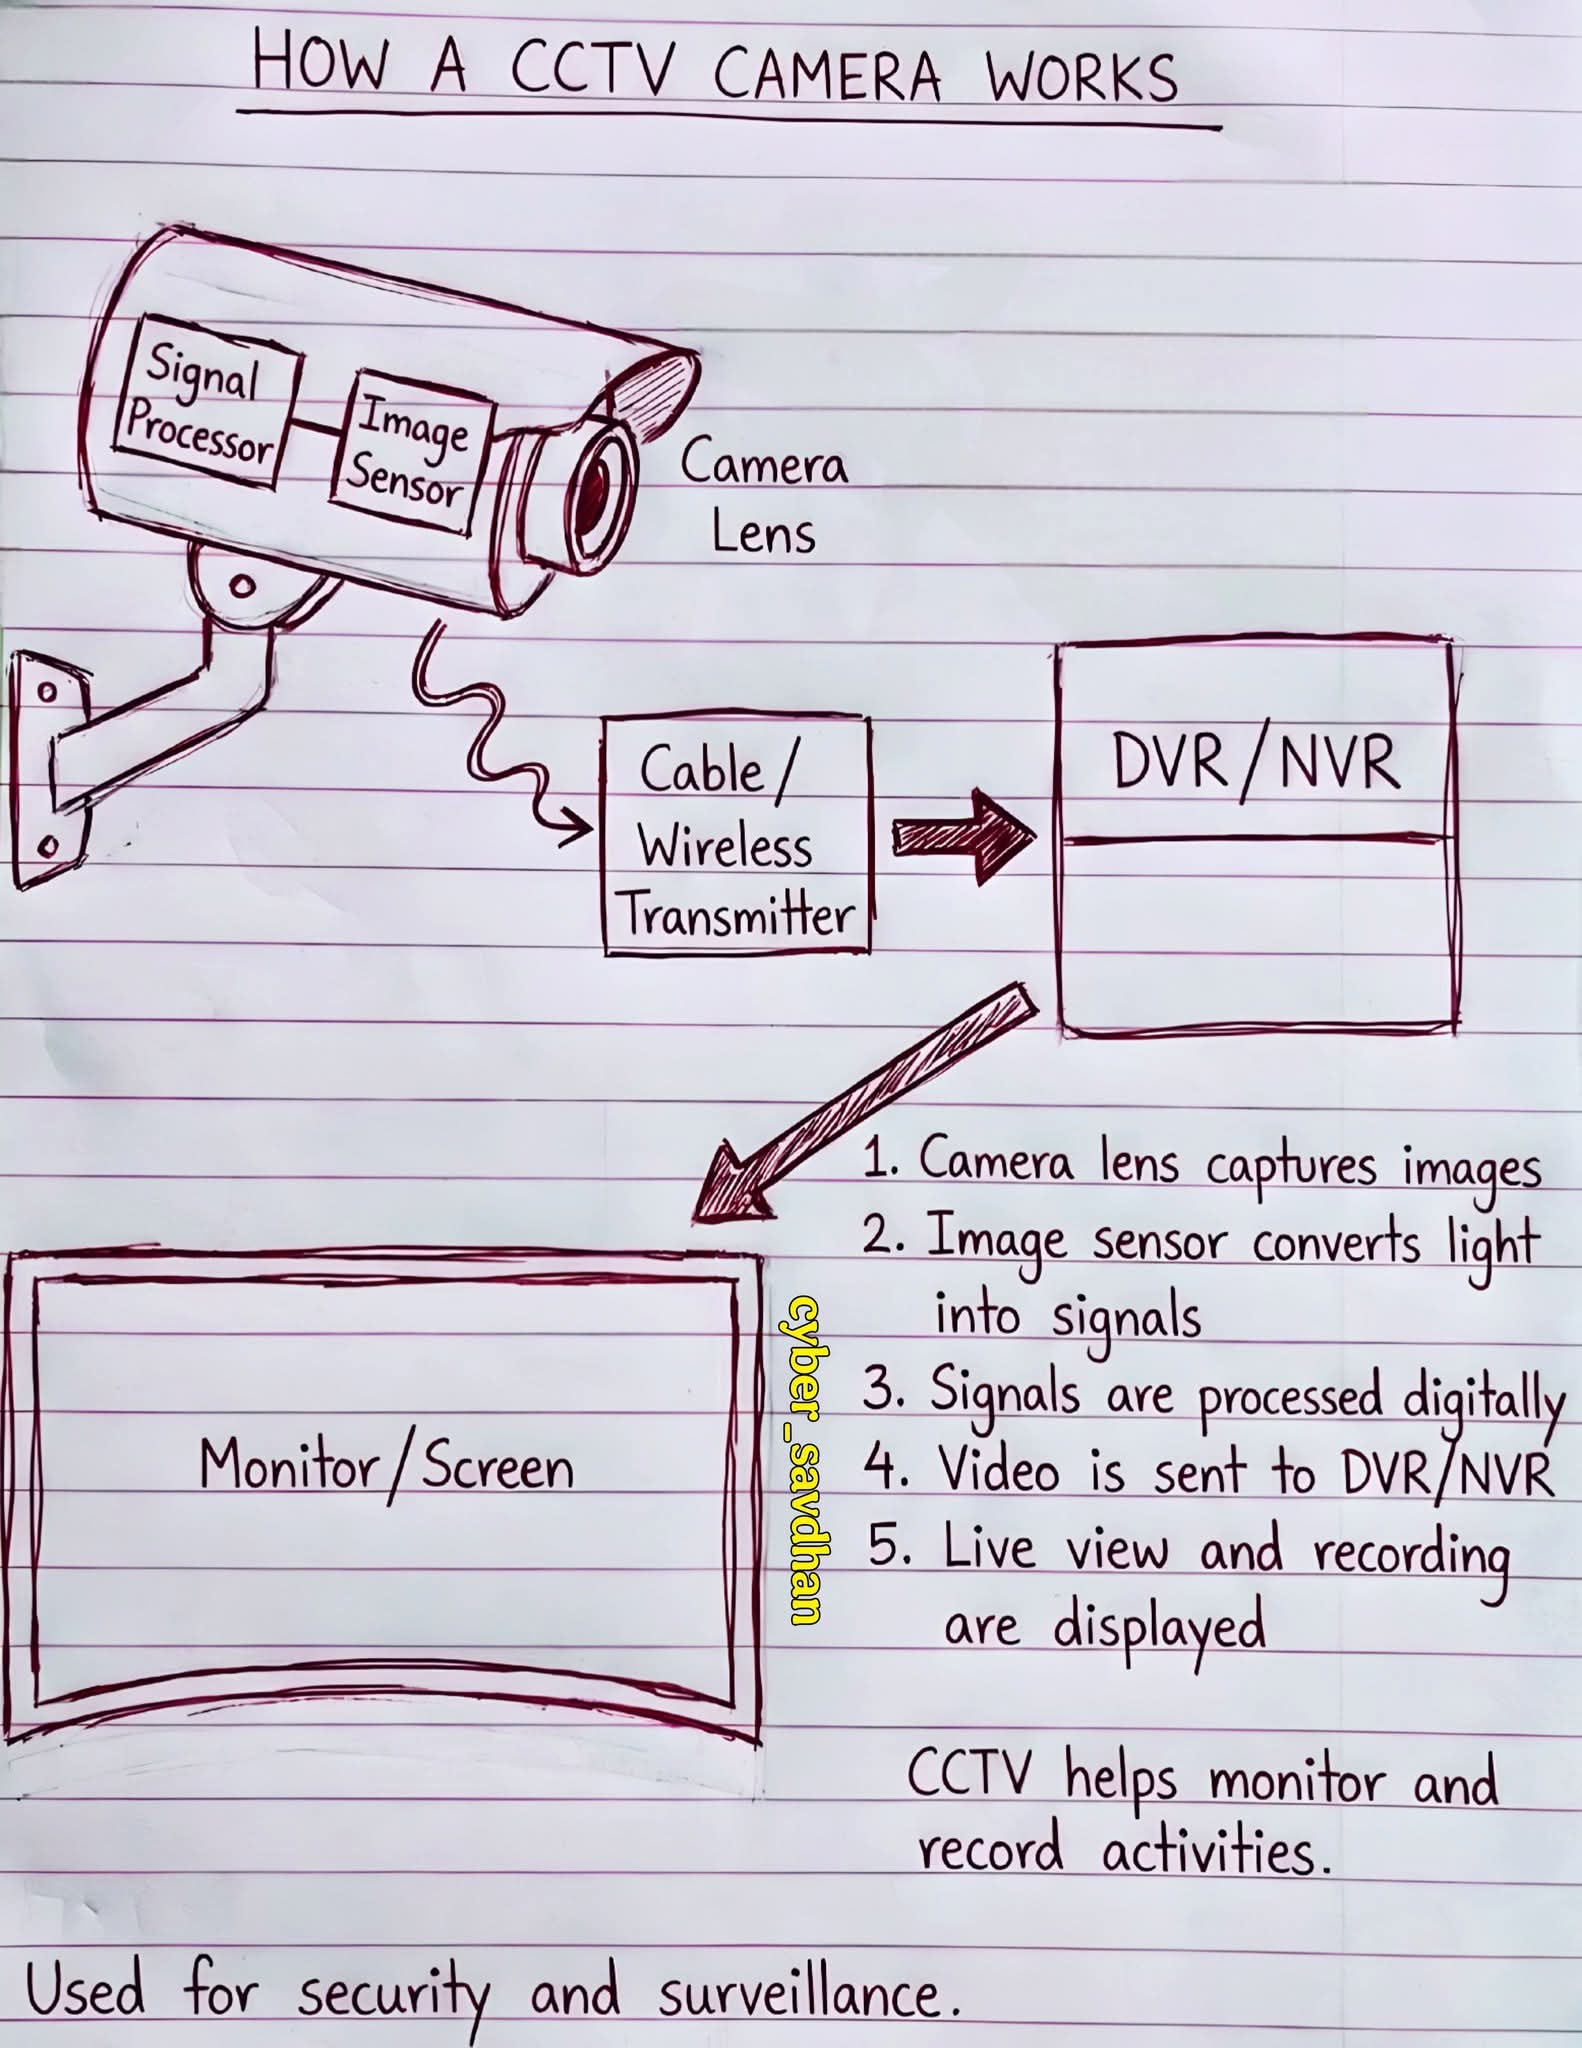 HOW A CCTV CAMERA WORKS
Signal
Processor
Image
Sensor
Camera
Lens
Cable/
Wireless
Transmitter
DVR/NVR
1. Camera lens captures images
2. Image sensor converts light
into signals
3. Signals are processed digitally
4. Video is sent to DVR/NVR
5. Live view and recording
are displayed
Monitor/Screen
cyber_savdhan
CCTV helps monitor and
record activities.
Used for security and surveillance.